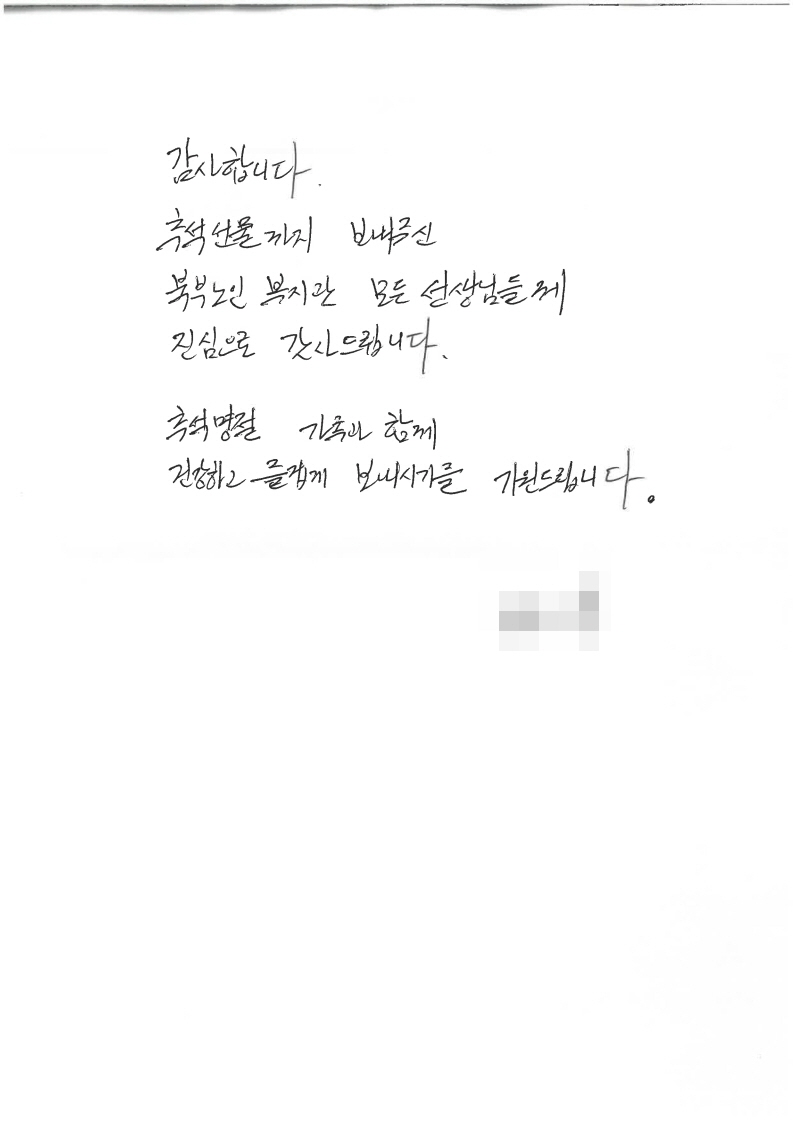 감사합니다.
추석선물까지 보내주신
북부노인 복지관 모든 선생님들께
진심으로 감사드립니다.
추석명절 가족과 함께
건강하고 즐겁게 보내시기를 기원드립니다.